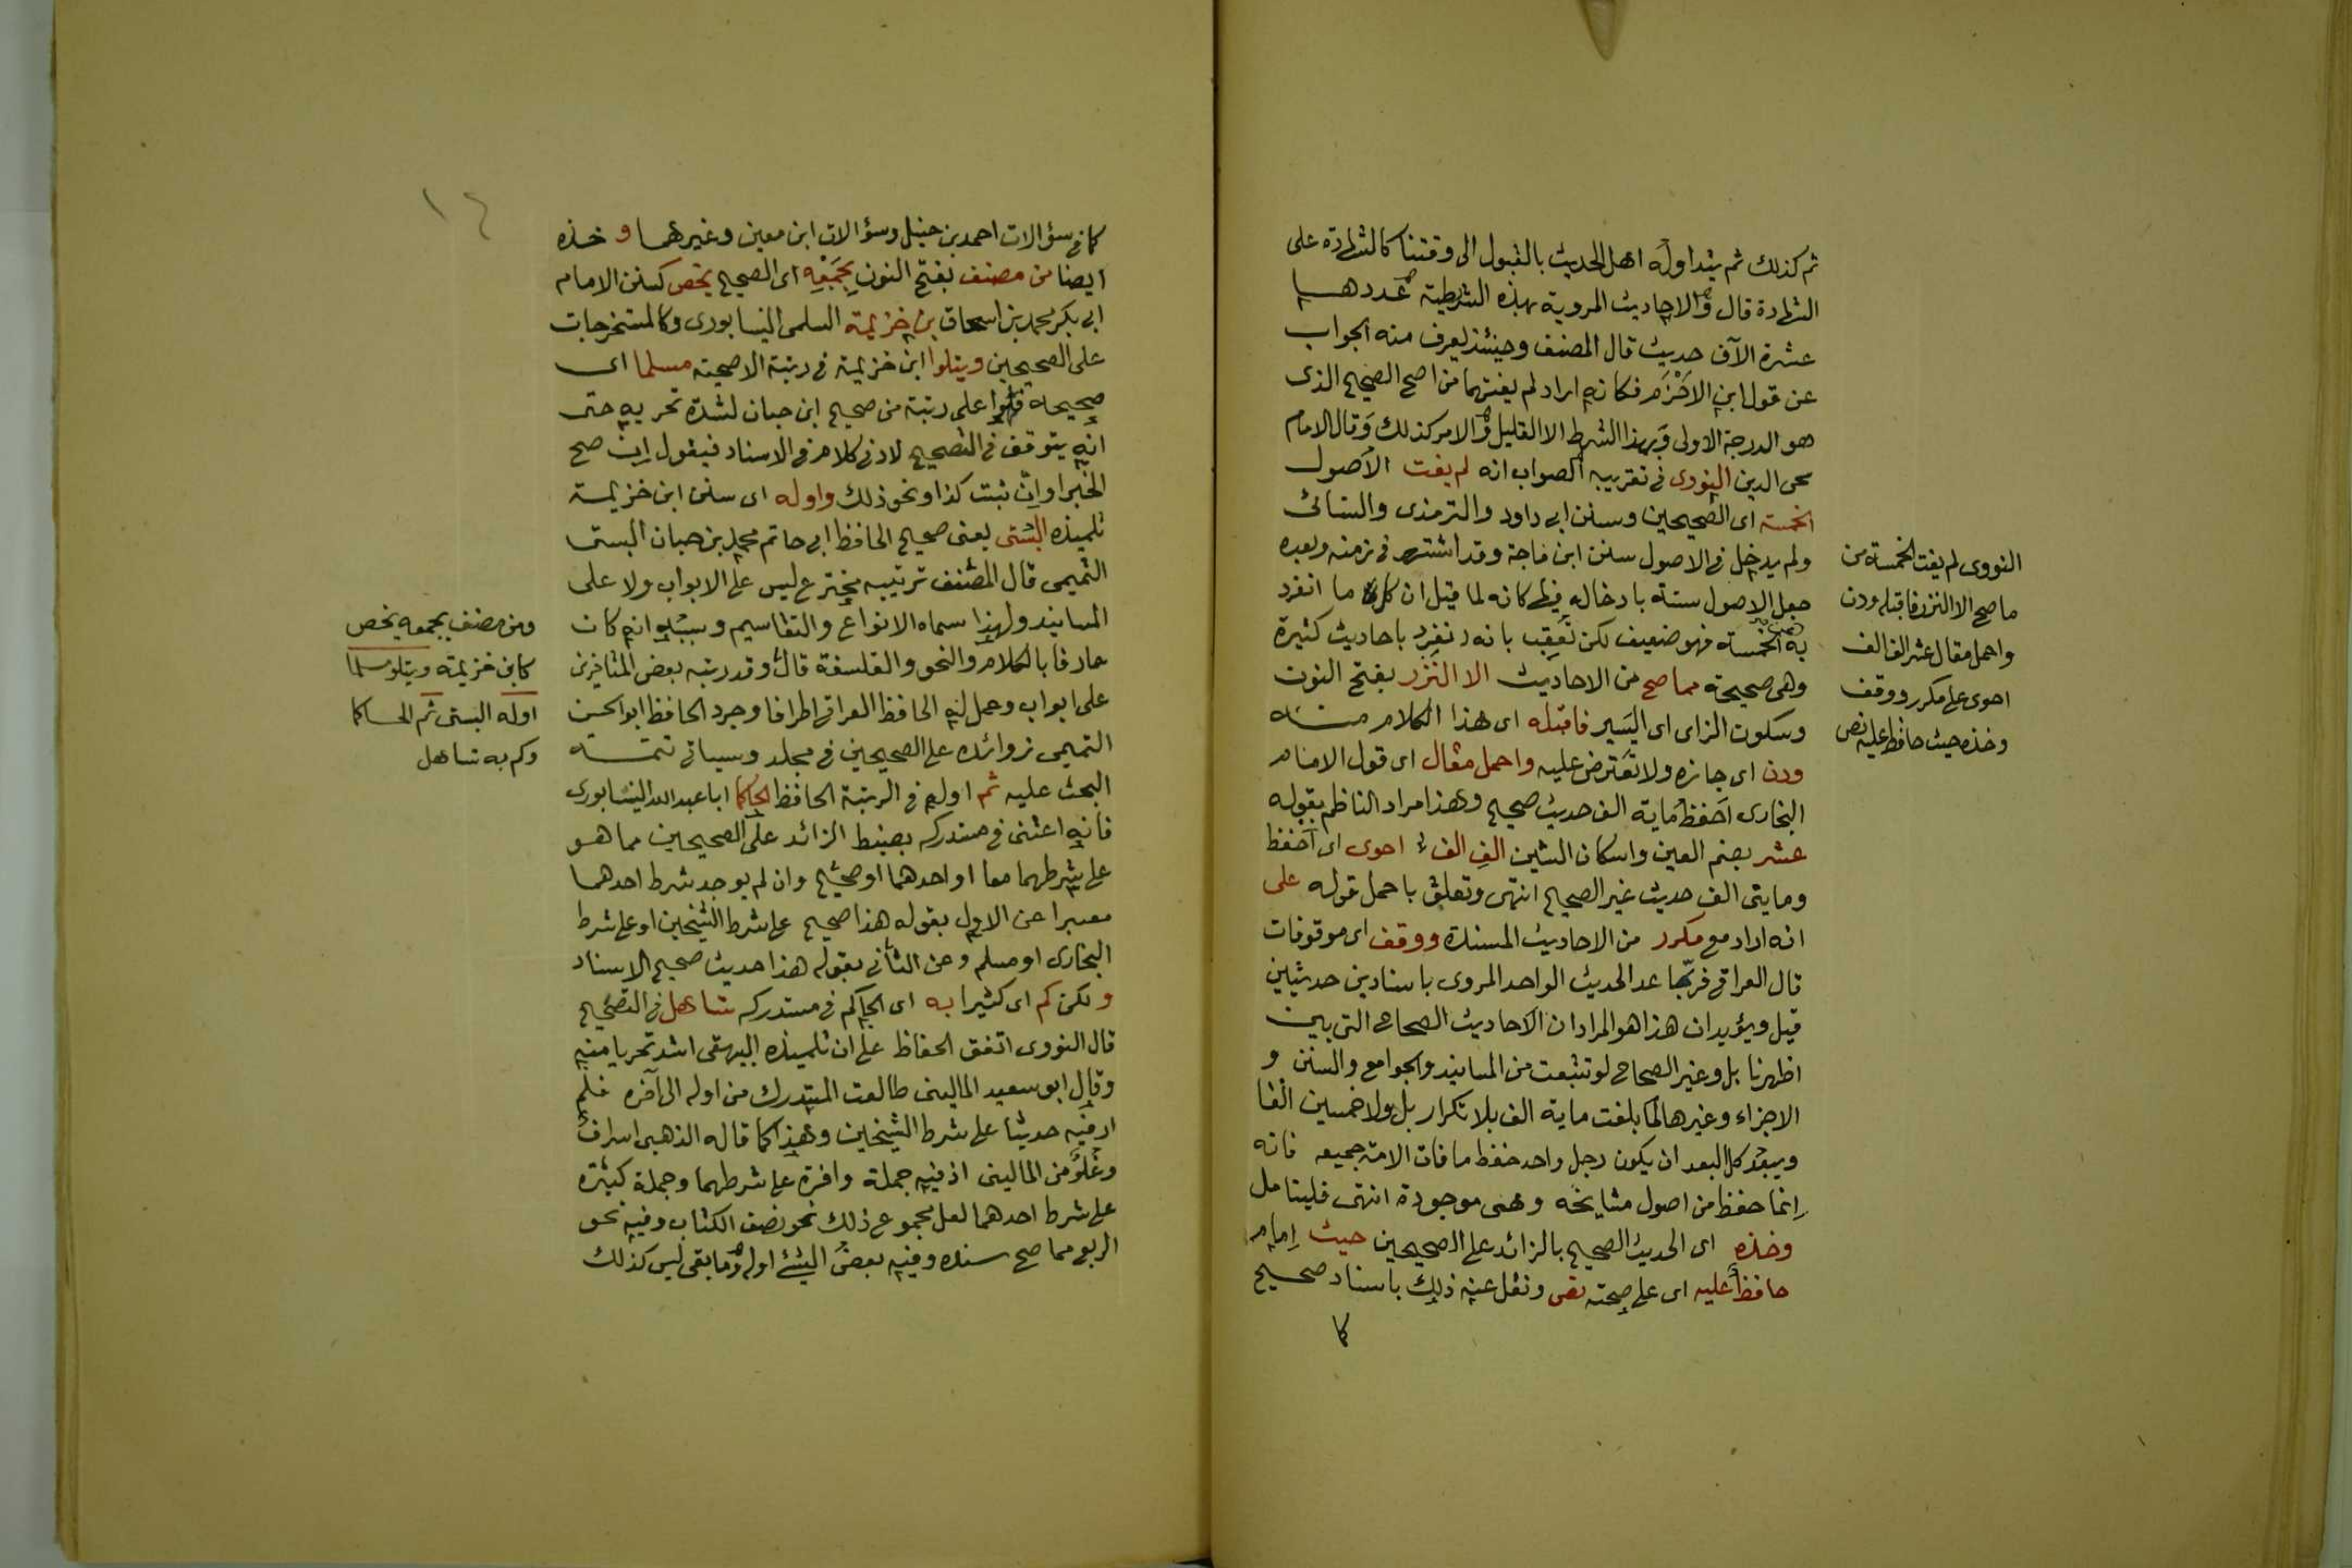 ثم كذلك ثم يتداوله اهل الحديث بالقبول الى وقتنا كالشهادة على
الشهادة قال والاحاديث المروية بهذه الشريطة عددها
عشرة الآف حديث قال المصنف وحينئذ يعرف منه الجواب
عن قول ابن الاخرم فكانه اراد لم يفتهما من اصح الصحيح الذى
هو الدرجة الاولى وبهذا الشرط الا القليل والامر كذلك وقال الامام
محى الدين النووى فى تقريبه الصواب انه لم يفت الاصول
الخمسة اى الصحيحين وسنن ابى داود والترمذى والنسائى
ولم يدخل فى الاصول سنن ابن ماجة وقد اشتهر فى زمنه وبعده
جعل الاصول ستة بادخاله فيها كانه لما قيل ان كل ما انفرد
به الخمسة فهو ضعيف لكن تعقب بانه انفرد باحاديث كثيرة
وهى صحيحة مما صح من الاحاديث الا النزر بفتح النون
وسكون الزاى اى اليسير فاقبله اى هذا الكلام منه
ودن اى جازه ولا تعترض عليه واحمل مقال اى قول الامام
البخارى احفظ ماية الف حديث صحيح وهذا مراد الناظم بقوله
عشر بضم العين واسكان الشين الف الف احوى اى احفظ
ومايتى الف حديث غير الصحيح انتهى وتعلق باحمل قوله على
انه اراد مع مكرر من الاحاديث المسندة ووقف اى موقوفات
قال العراقى فربما عد الحديث الواحد المروى باسنادين حديثين
قيل ويؤيد ان هذا هو المراد ان الاحاديث الصحاح التى بين
اظهرنا بل وغير الصحاح لو تتبعت من المسانيد والجوامع والسنن و
الاجزاء وغيرها لما بلغت ماية الف بلا تكرار بل ولا خمسين الفا
ويبعد كل البعد ان يكون رجل واحد حفظ ما فات الامة جميعه فانه
انما حفظ من اصول مشايخه وهى موجودة انتهى فليتامل
وخذه اى الحديث الصحيح بالزائد على الصحيحين حيث امام
حافظ عليه اى على صحته نص ونقل عنه ذلك باسناد صحيح
كما
النووى لم يفت الخمسة من
ما صح الا النزر فاقبله ودن
واحمل مقال عشر الف الف
احوى على مكرر ووقف
وخذه حيث حافظ عليه نص
١٤
كما فى سؤالات احمد بن حنبل وسؤالات ابن معين وغيرهما و خذه
ايضا من مصنف بفتح النون بجمعه اى الصحيح يخص كسنن الامام
ابى بكر محمد بن اسحاق بن خزيمة السلمى النيسابورى وكالمستخرجات
على الصحيحين ويتلوا ابن خزيمة فى رتبة الاصحية مسلما اى
صحيحه على رتبة من صحيح ابن حبان لشدة تحريه حتى
انه يتوقف فى التصحيح لادنى كلام فى الاسناد فيقول ان صح
الخبر او ان ثبت كذا ونحو ذلك واوله اى سنن ابن خزيمة
تلميذه البستى يعنى صحيح الحافظ ابى حاتم محمد بن حبان البستى
التميمى قال المصنف ترتيبه مخترع ليس على الابواب ولا على
المسانيد ولهذا سماه الانواع والتقاسيم وسببه انه كان
عارفا بالكلام والنحو والفلسفة قال وقد رتبه بعض المتاخرين
على ابواب وعمل له الحافظ العراقى اطرافا وجرد الحافظ ابو الحسن
التميمى زوائده على الصحيحين فى مجلد وسياتى تتمة
البحث عليه ثم اوله فى الرتبة الحافظ الحاكما ابا عبد الله النيسابورى
فانه اعتنى فى مستدركه بضبط الزائد على الصحيحين مما هو
على شرطهما معا او احدهما او صحيح وان لم يوجد شرط احدهما
معبرا عن الاول بقوله هذا صحيح على شرط الشيخين او على شرط
البخارى او مسلم وعن الثانى بقوله هذا حديث صحيح الاسناد
و لكن كم اى كثيرا به اى الحاكم فى مستدركه تساهل فى التصحيح
قال النووى اتفق الحفاظ على ان تلميذه البيهقى اشد تحريا منه
وقال ابو سعيد المالينى طالعت المستدرك من اوله الى آخره فلم
ار فيه حديثا على شرط الشيخين وهذا كما قاله الذهبى اسراف
وغلو من المالينى اذ فيه جملة وافرة على شرطهما وجملة كثيرة
على شرط احدهما لعل مجموع ذلك نحو نصف الكتاب وفيه نحو
الربع مما صح سنده وفيه بعض الشئ اوله وما بقى ليس كذلك
ومن مصنف بجمعه يخص
كابن خزيمة ويتلو مسلما
اوله البستى ثم الحاكما
وكم به تساهل